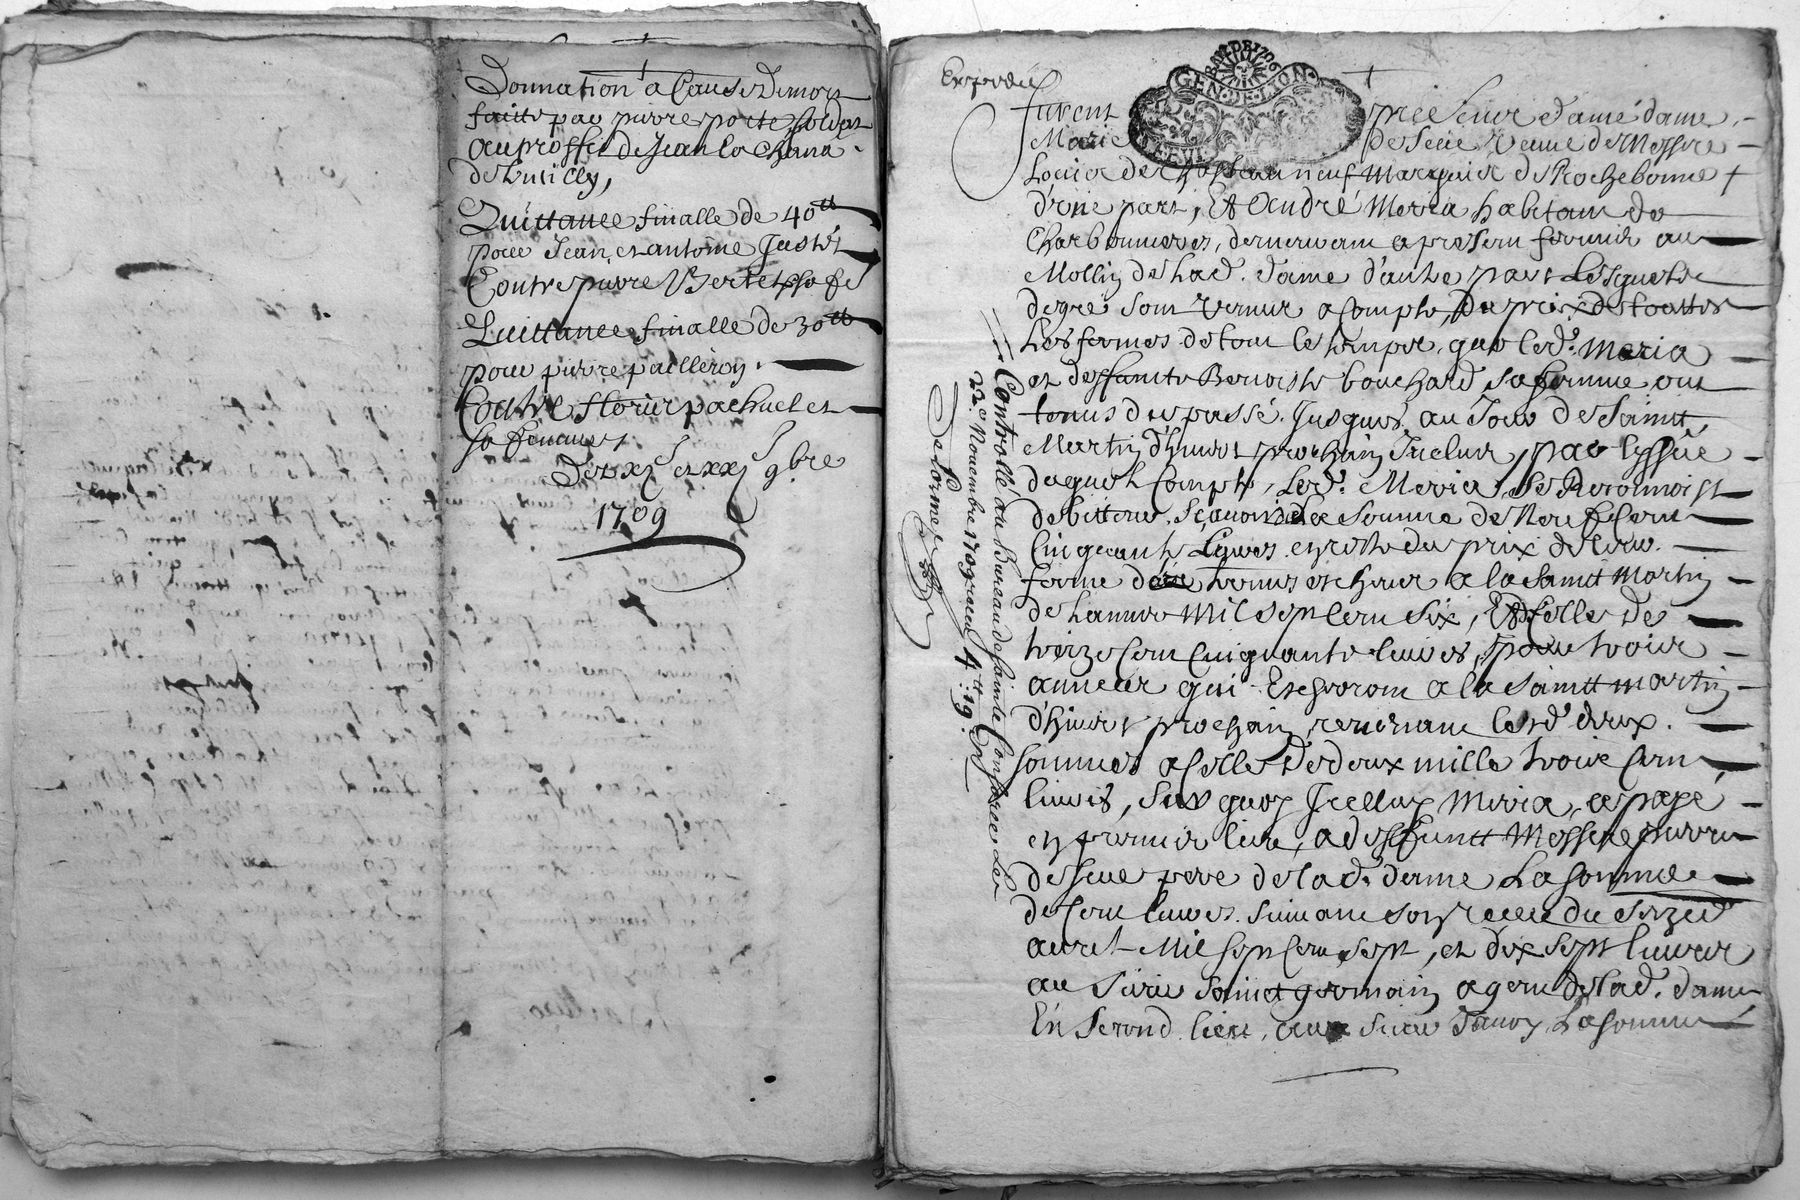 Donnation a Cause de mort
faitte par pierre porte soldat
au proffit de Jean la Chana
de
Quittance finalle de 40tt
pour Jean et antoine
Contre pierre
Quittance finalle de 30tt
pour pierre pailleron
Contre
sa femme
Des xj et xxj 9bre
1709
Expedié
GEN·DE·LYON
Furent presens dame dame
Marie de Seve veuve de Messire
Louis de Chasteauneuf Marquis de Rochebonne
d'une part, Et André Meria habitant de
Charbonnieres, demeurant a present fermier au
Mollin de lad. dame d'autre part Lesquels
de gre sont venus a Compte, du prix de touttes
Les fermes de tout le temps que led. Meria
et deffuncte Benoiste bouchard sa femme ont
tenus du passé Jusques au Jour de Sainct
Martin d'hiver prochain Inclus, par lissüe
duquel Compte, Led. Meria, se Reconnoist
debitteur, sçavoir de la somme de Neuf Cent
Cinquante Livres en reste du prix de leur
ferme des termes escheus a la Sainct Martin
de l'année Mil sept Cent Six, Et de Celle de
treize Cent Cinquante livres, pour trois
années qui Escherront a la Sainct Martin
d'hiver prochain, revenant lesd. deux
sommes a Celle de deux mille trois Cent
livres, Sur quoy Icelluy Meria, a payé
en premier lieu, a deffunct Messire pierre
de Seve pere de lad. dame La somme
de Cent livres suivant son receu du seize
avril Mil sept Cent sept, et dix sept livres
au Sieur Sainct germain agent de lad. dame
En Second lieu, au Sieur La somme
Controllé au Bureau de Sainte Consorce, Le
22e Novembre 1709 receu 4tt:19s
Delorme